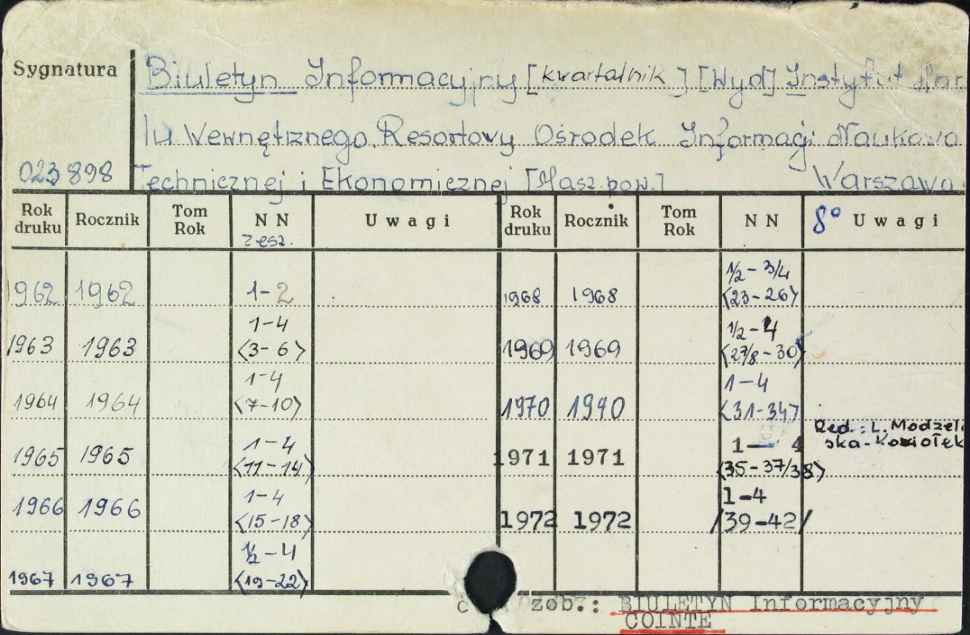 Sygnatura Biuletyn Informacyjny [kwartalnik] [Wyd] Instytut Han
lu Wewnętrznego. Resortowy Ośrodek Informacji Naukowa
023898 Technicznej i Ekonomicznej [Masz. pow.] Warszawa
Rok druku Rocznik Tom Rok NN zesz. Uwagi Rok druku Rocznik Tom Rok NN 8° Uwagi
1962 1962 1-2 1968 1968 1/2-3/4 <23-26>
1963 1963 1-4 <3-6> 1969 1969 1/2-4 <27/8-30>
1964 1964 1-4 <7-10> 1970 1970 1-4 <31-34>
1965 1965 1-4 <11-14> 1971 1971 1-4 <35-37/38> Red.: L. Modzele
ska-Koziołek
1966 1966 1-4 <15-18> 1972 1972 1-4 /39-42/
1967 1967 1/2-4 <19-22>
zob.: BIULETYN Informacyjny
COINTE